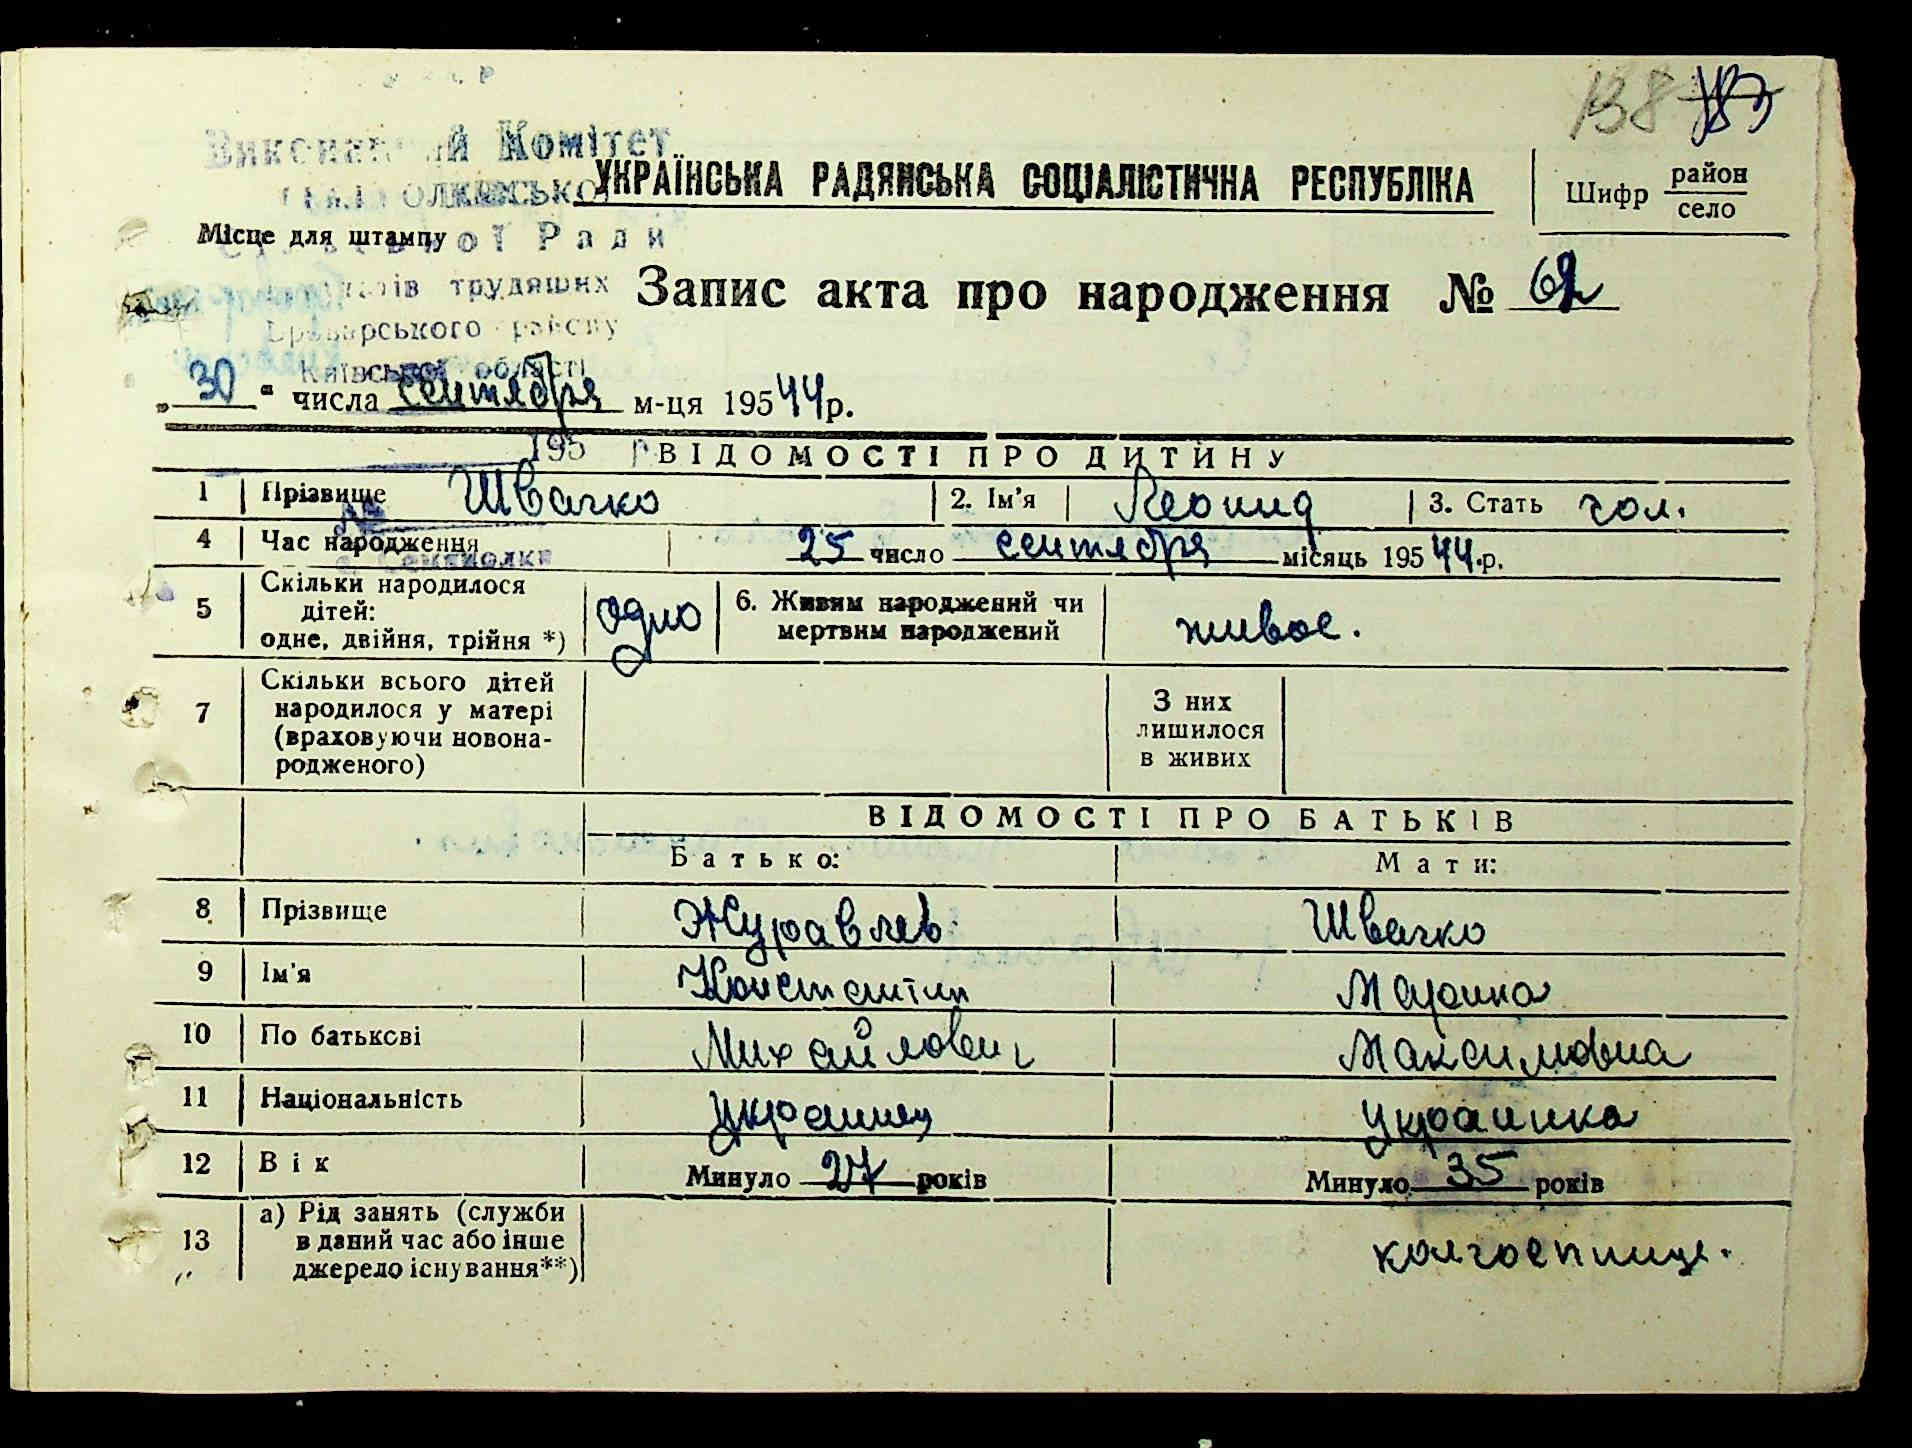 138 183
Комітет
УКРАЇНСЬКА РАДЯНСЬКА СОЦІАЛІСТИЧНА РЕСПУБЛІКА
Шифр район
село
Місце для штампу
Ради
трудящих
Запис акта про народження № 62
Броварського району
Київської області
„ 30 " числа сентября м-ця 195 44 р.
195 р
ВІДОМОСТІ ПРО ДИТИНУ
1 Прізвище Швачко 2. Ім'я Леонид 3. Стать чол.
4 Час народження 25 число сентября місяць 195 44.р.
5 Скільки народилося
дітей:
одне, двійня, трійня *) одно 6. Живим народжений чи
мертвим народжений живое.
7 Скільки всього дітей
народилося у матері
(враховуючи новона-
родженого)
З них
лишилося
в живих
ВІДОМОСТІ ПРО БАТЬКІВ
Батько: Мати:
8 Прізвище Журавлев Швачко
9 Ім'я Константин Марина
10 По батькові Михайлович Максимовна
11 Національність украинец украинка
12 Вік Минуло 27 років Минуло 35 років
13 а) Рід занять (служби
в даний час або інше
джерело існування**) колгоспнице.